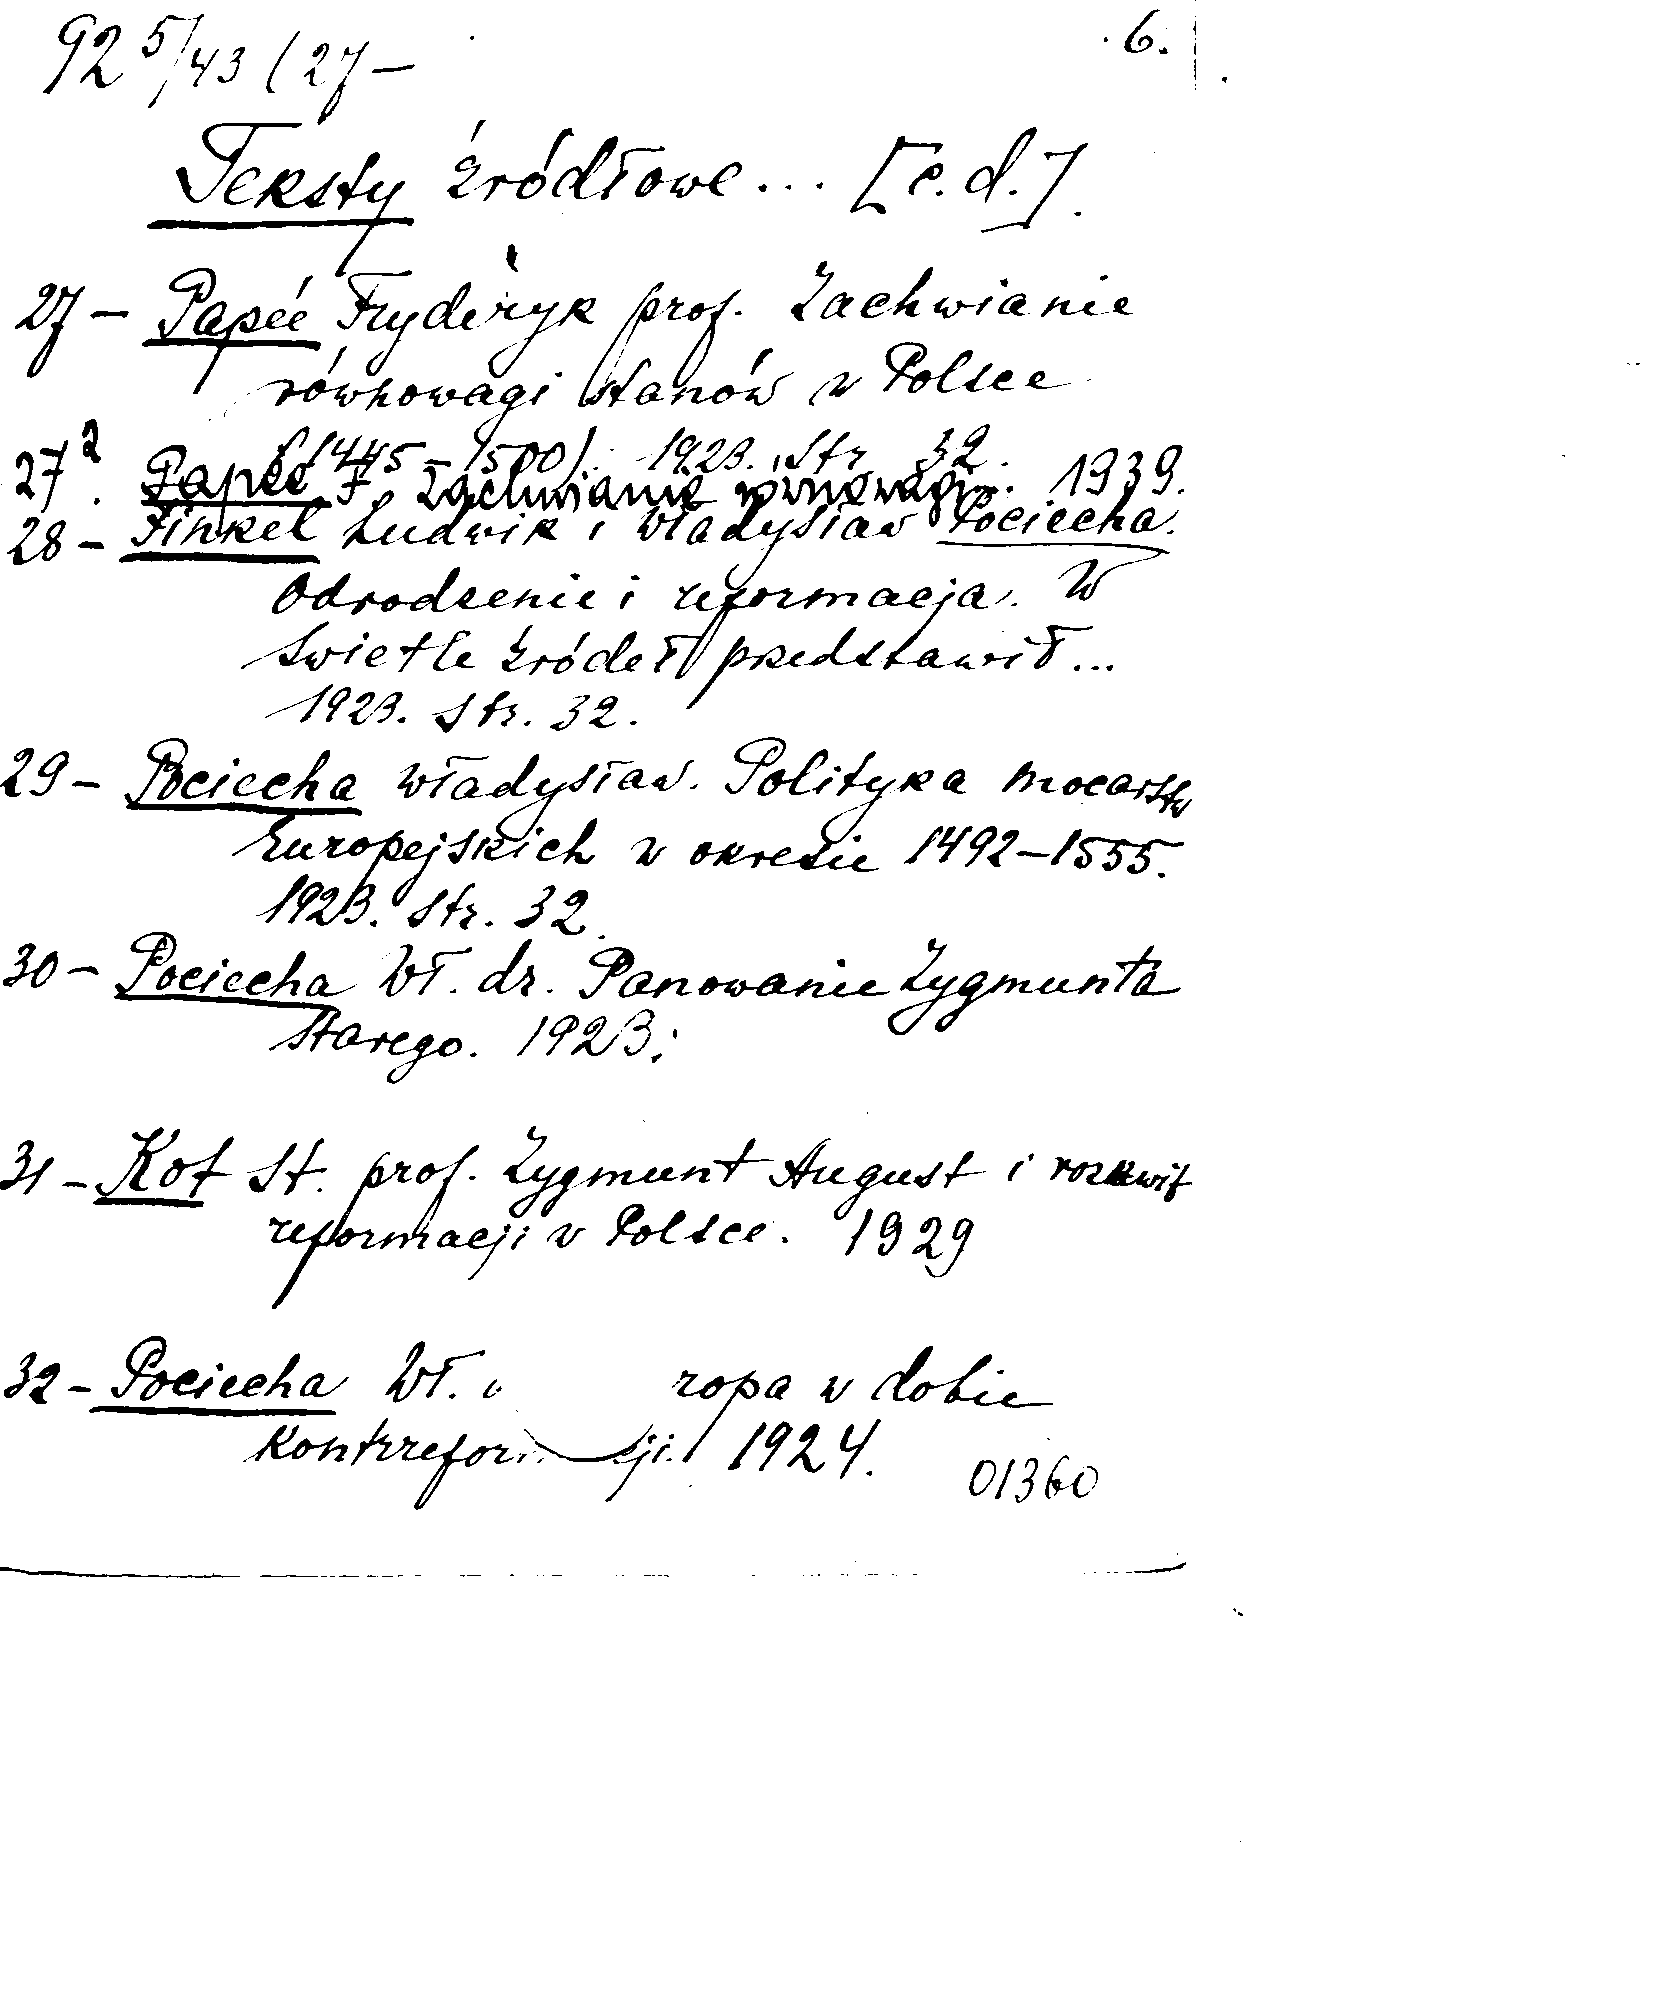 92 5/43 (27 –
6.
Teksty źródłowe ... [c. d.]
27 – Papée Fryderyk prof. Zachwianie
równowagi stanów w Polsce
(1445 – 1500). 1923. Str 32.
27². Papée F. Zachwianie równowagi... 1939.
28 – Finkel Ludwik i Władysław Pociecha.
Odrodzenie i reformacja. W
świetle źródeł przedstawił...
1923. Str. 32.
29 – Pociecha Władysław. Polityka mocarstw
Europejskich w okresie 1492–1555.
1923. Str. 32.
30 – Pociecha Wł. dr. Panowanie Zygmunta
Starego. 1923.
31 – Kot St. prof. Zygmunt August i rozkwit
reformacji w Polsce. 1929
32 – Pociecha Wł. ropa w dobie
Kontrrefor ji. 1924.
01360